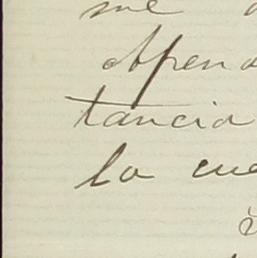 me
Apena
tancia
la cue